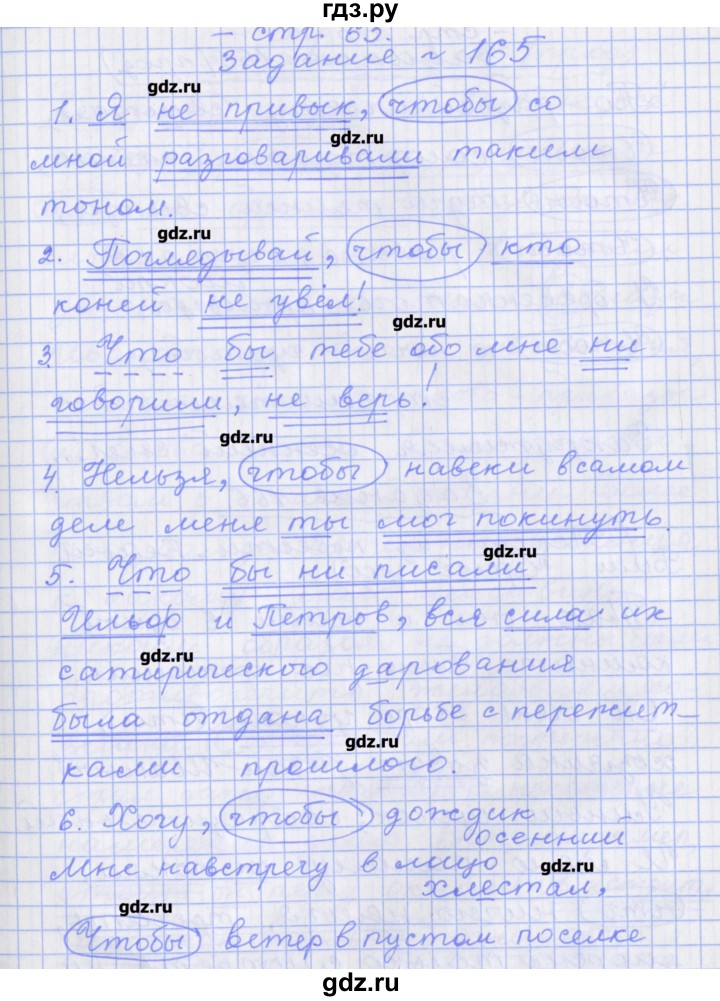 гдз.ру
- стр. 65.
Задание № 165
gdz.ru
1. Я не привык, чтобы со
gdz.ru
мной разговаривали таким
тоном.
gdz.ru
2. Поглядывай, чтобы кто
коней не увёл!
gdz.ru
3. Что бы тебе обо мне ни
говорили, не верь!
gdz.ru
4. Нельзя, чтобы навеки в самом
деле меня ты мог покинуть.
gdz.ru
5. Что бы ни писали
Ильф и Петров, вся сила их
gdz.ru
сатирического дарования
была отдана борьбе с пережит-
gdz.ru
ками прошлого.
6. Хочу, чтобы дождик
осенний
Мне навстречу в лицо
gdz.ru
хлестал,
gdz.ru
Чтобы ветер в пустом поселке
gdz.ru